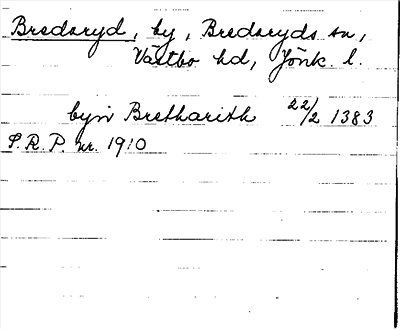 Bredaryd, by, Bredaryds sn,
Västbo hd, Jönk. l.
byn Bretharith 22/2 1383
S.R.P. nr. 1910